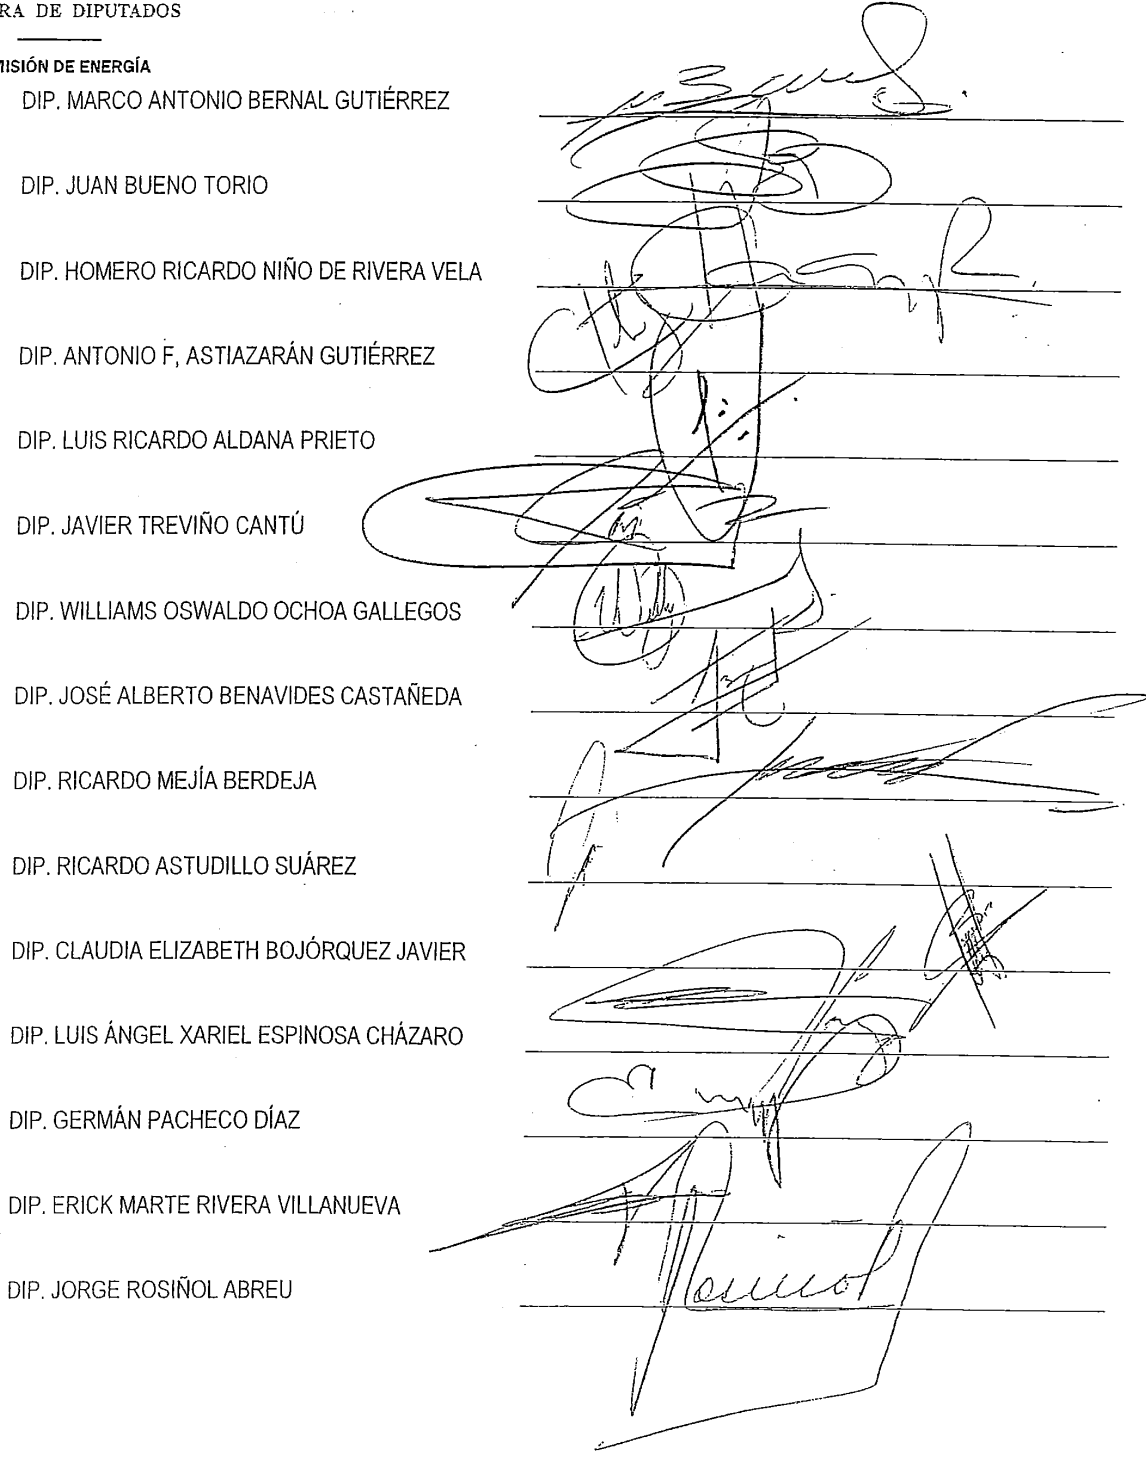 RA DE DIPUTADOS
ISIÓN DE ENERGÍA
DIP. MARCO ANTONIO BERNAL GUTIÉRREZ
DIP. JUAN BUENO TORIO
DIP. HOMERO RICARDO NIÑO DE RIVERA VELA
DIP. ANTONIO F, ASTIAZARÁN GUTIÉRREZ
DIP. LUIS RICARDO ALDANA PRIETO
DIP. JAVIER TREVIÑO CANTÚ
DIP. WILLIAMS OSWALDO OCHOA GALLEGOS
DIP. JOSÉ ALBERTO BENAVIDES CASTAÑEDA
DIP. RICARDO MEJÍA BERDEJA
DIP. RICARDO ASTUDILLO SUÁREZ
DIP. CLAUDIA ELIZABETH BOJÓRQUEZ JAVIER
DIP. LUIS ÁNGEL XARIEL ESPINOSA CHÁZARO
DIP. GERMÁN PACHECO DÍAZ
DIP. ERICK MARTE RIVERA VILLANUEVA
DIP. JORGE ROSIÑOL ABREU